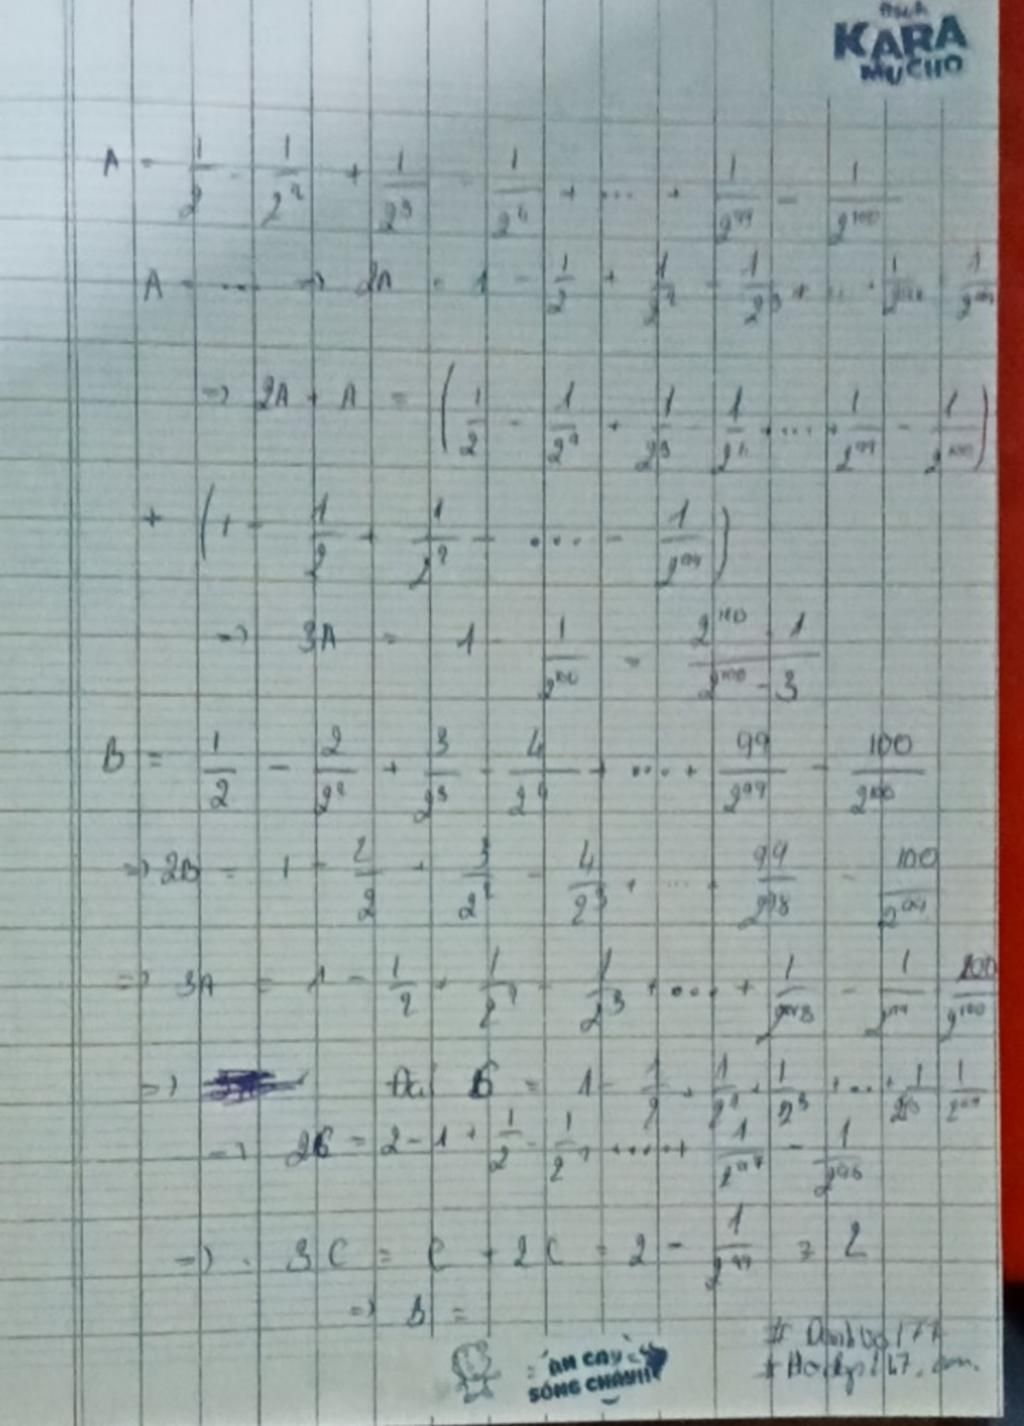 KARA
MUCHO
A = 1/2 - 1/2² + 1/2³ - 1/2⁴ + ... + 1/2⁹⁹ - 1/2¹⁰⁰
A = ... => 2A = 1 - 1/2 + 1/2² - 1/2³ + ... + 1/2⁹⁸ - 1/2⁹⁹
=> 2A + A = (1/2 - 1/2² + 1/2³ - 1/2⁴ + ... + 1/2⁹⁹ - 1/2¹⁰⁰)
+ (1 - 1/2 + 1/2² - .... - 1/2⁹⁹)
=> 3A = 1 - 1/2¹⁰⁰ = 2¹⁰⁰ - 1/2¹⁰⁰ - 3
B = 1/2 - 2/2² + 3/2³ - 4/2⁴ + .... + 99/2⁹⁹ - 100/2¹⁰⁰
=> 2B = 1 - 2/2 + 3/2² - 4/2³ + ... + 99/2⁹⁸ - 100/2⁹⁹
=> 3A = 1 - 1/2 + 1/2² - 1/2³ + ... + 1/2⁹⁸ - 1/2⁹⁹ - 100/2¹⁰⁰
=> = 1 - 1/2 + 1/2² + 1/2³ + ... + 1/2⁹⁹
=> 2C = 2 - 1 + 1/2 - 1/2² + ..... + 1/2⁹⁷ - 1/2⁹⁸
=> . 3C = C + 2C = 2 - 1/2⁹⁹ = 2
=> B =
ĂN CAY
SỐNG CHÁY!!